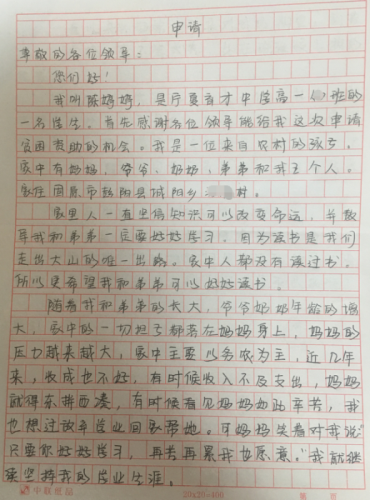 申请
尊敬的各位领导：
您们好！
我叫陈婷婷，是宁夏育才中学高一 班的
一名学生。首先感谢各位领导能给我这次申请
贫困资助的机会。我是一位来自农村的孩子。
家中有妈妈，爷爷，奶奶，弟弟和我五个人。
家住固原市彭阳县城阳乡 村。
家里人一直坚信知识可以改变命运，并教
导我和弟弟一定要好好学习，因为读书是我们
走出大山的唯一出路。家中人都没有读过书。
所以更希望我和弟弟可以好好读书。
随着我和弟弟的长大，爷爷奶奶年龄的增
大，家中的一切担子都落在妈妈身上，妈妈的
压力越来越大，家中主要以务农为主，近几年
来，收成也不好，有时候收入不及支出，妈妈
就得东拼西凑，有时候看见妈妈如此辛苦，我
也想过放弃学业回家帮她。可妈妈笑着对我说“
只要你好好学习，再苦再累我也愿意。”我就继
续坚持我的学业生涯。
中联纸品 20×20=400 第 页